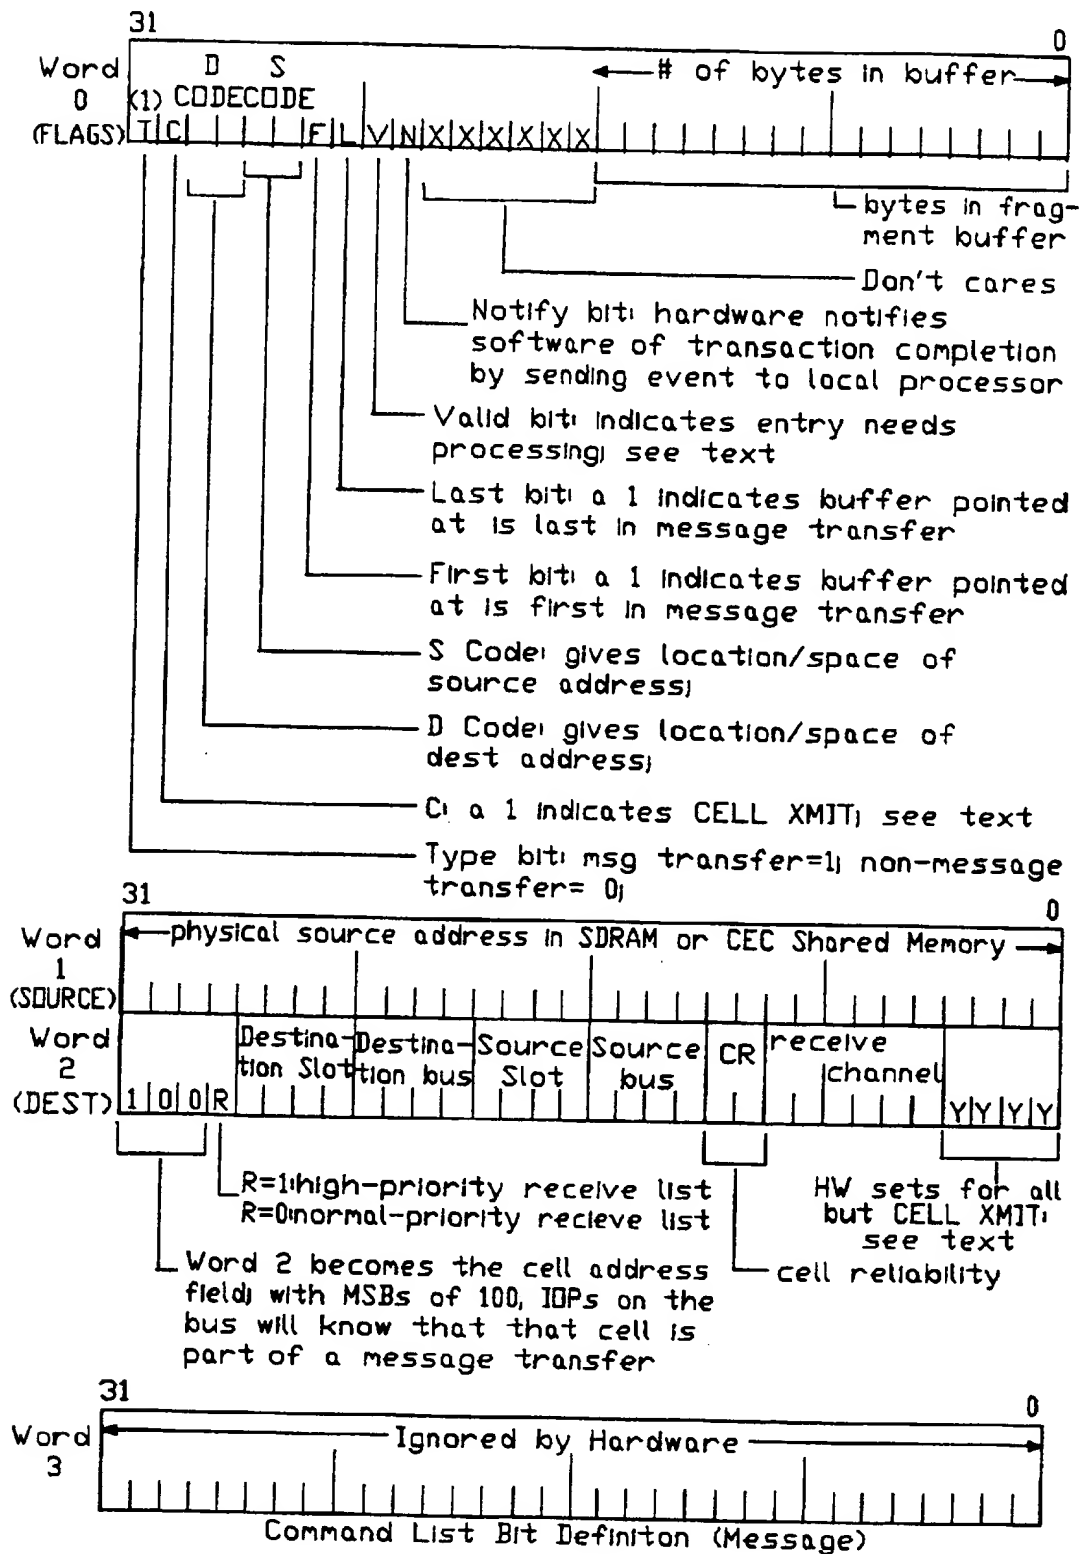 31
0
Word
0
(FLAGS)
D S
(1) CODECODE
# of bytes in buffer
T C F L V N X X X X X X
bytes in frag-
ment buffer
Don't cares
Notify bit: hardware notifies
software of transaction completion
by sending event to local processor
Valid bit: indicates entry needs
processing; see text
Last bit: a 1 indicates buffer pointed
at is last in message transfer
First bit: a 1 indicates buffer pointed
at is first in message transfer
S Code: gives location/space of
source address;
D Code: gives location/space of
dest address;
C: a 1 indicates CELL XMIT; see text
Type bit: msg transfer=1; non-message
transfer= 0;
31
0
Word
1
(SOURCE)
physical source address in SDRAM or CEC Shared Memory
Word
2
(DEST)
1 0 0 R
Destina-
tion Slot
Destina-
tion bus
Source
Slot
Source
bus
CR
receive
channel
Y Y Y Y
R=1:high-priority receive list
R=0:normal-priority recieve list
HW sets for all
but CELL XMIT:
see text
Word 2 becomes the cell address
field; with MSBs of 100, IOPs on the
bus will know that that cell is
part of a message transfer
cell reliability
31
0
Word
3
Ignored by Hardware
Command List Bit Definiton (Message)